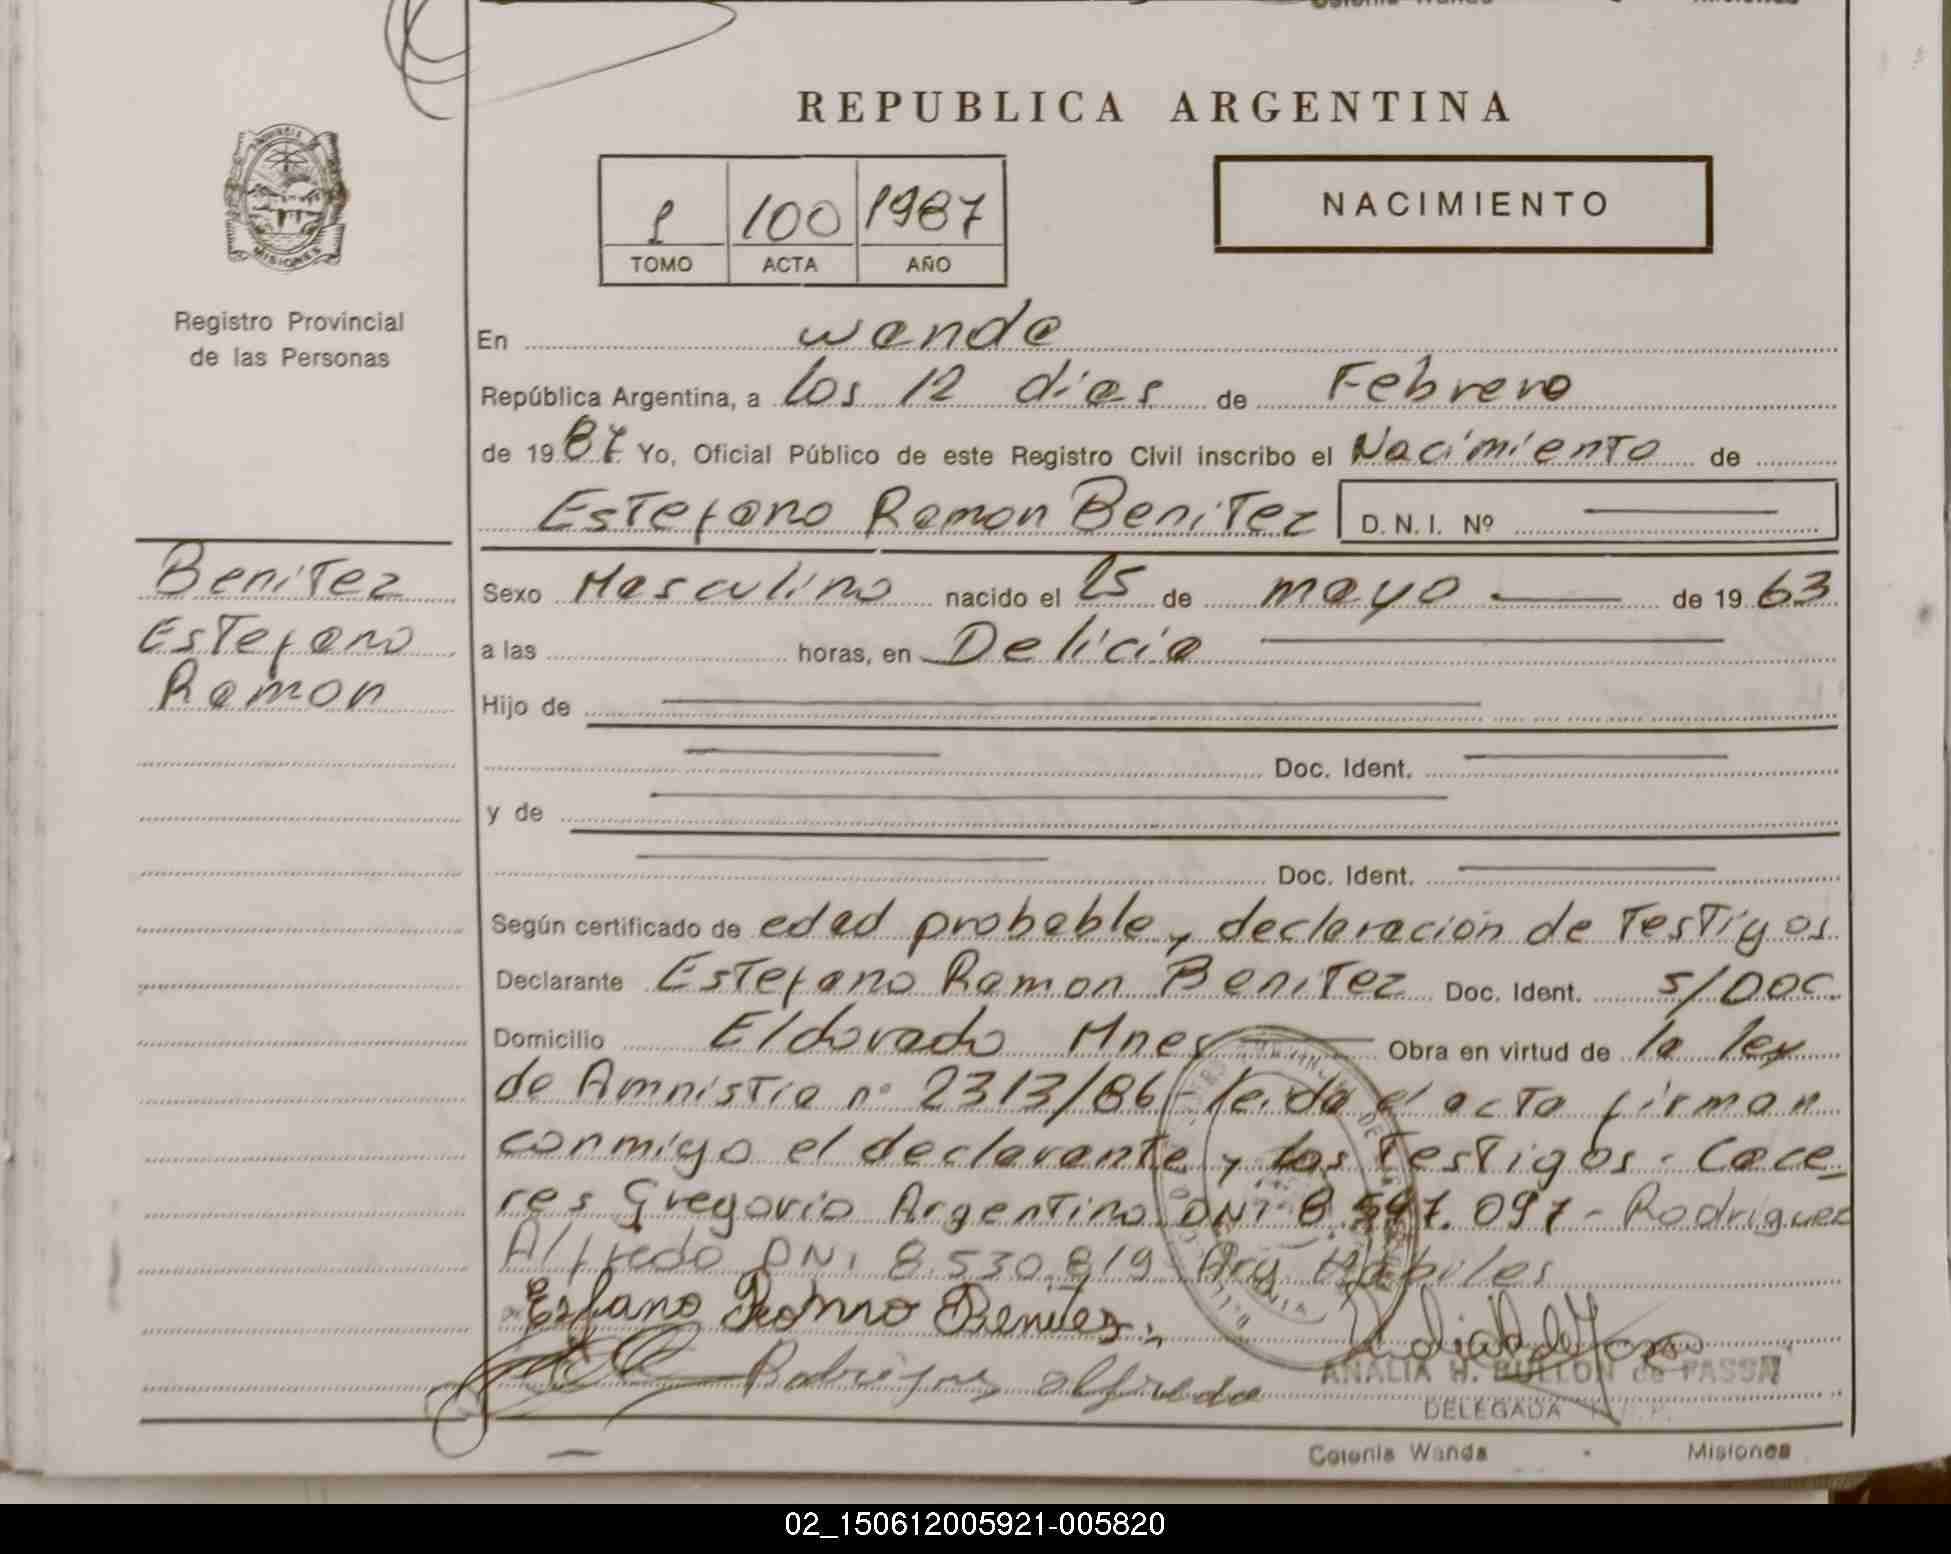 REPUBLICA ARGENTINA
PROVINCIA
MISIONES
Registro Provincial
de las Personas
1 100 1987
TOMO ACTA AÑO
NACIMIENTO
En wanda
República Argentina, a los 12 dias de Febrero
de 1987 Yo, Oficial Público de este Registro Civil inscribo el Nacimiento de
Estefano Ramon Benitez D.N.I. Nº
Benitez
Estefano
Ramon
Sexo Masculino nacido el 25 de mayo de 1963
a las horas, en Delicia
Hijo de
Doc. Ident.
y de
Doc. Ident.
Según certificado de edad probable y declaración de Testigos
Declarante Estefano Ramon Benitez Doc. Ident. s/DOC
Domicilio Eldorado Mnes Obra en virtud de la ley
de Amnistia nº 2313/86 - leida el acta firman
conmigo el declarante y los Testigos. Cace
res Gregorio Argentino DNI 8.597.097 - Rodriguez
Alfredo DNI 8.530.819
Esfano Romno Benitez
Rodrigues alfredo
ANALIA H. BULLON de PASSA
DELEGADA
Colonia Wanda - Misiones
02_150612005921-005820